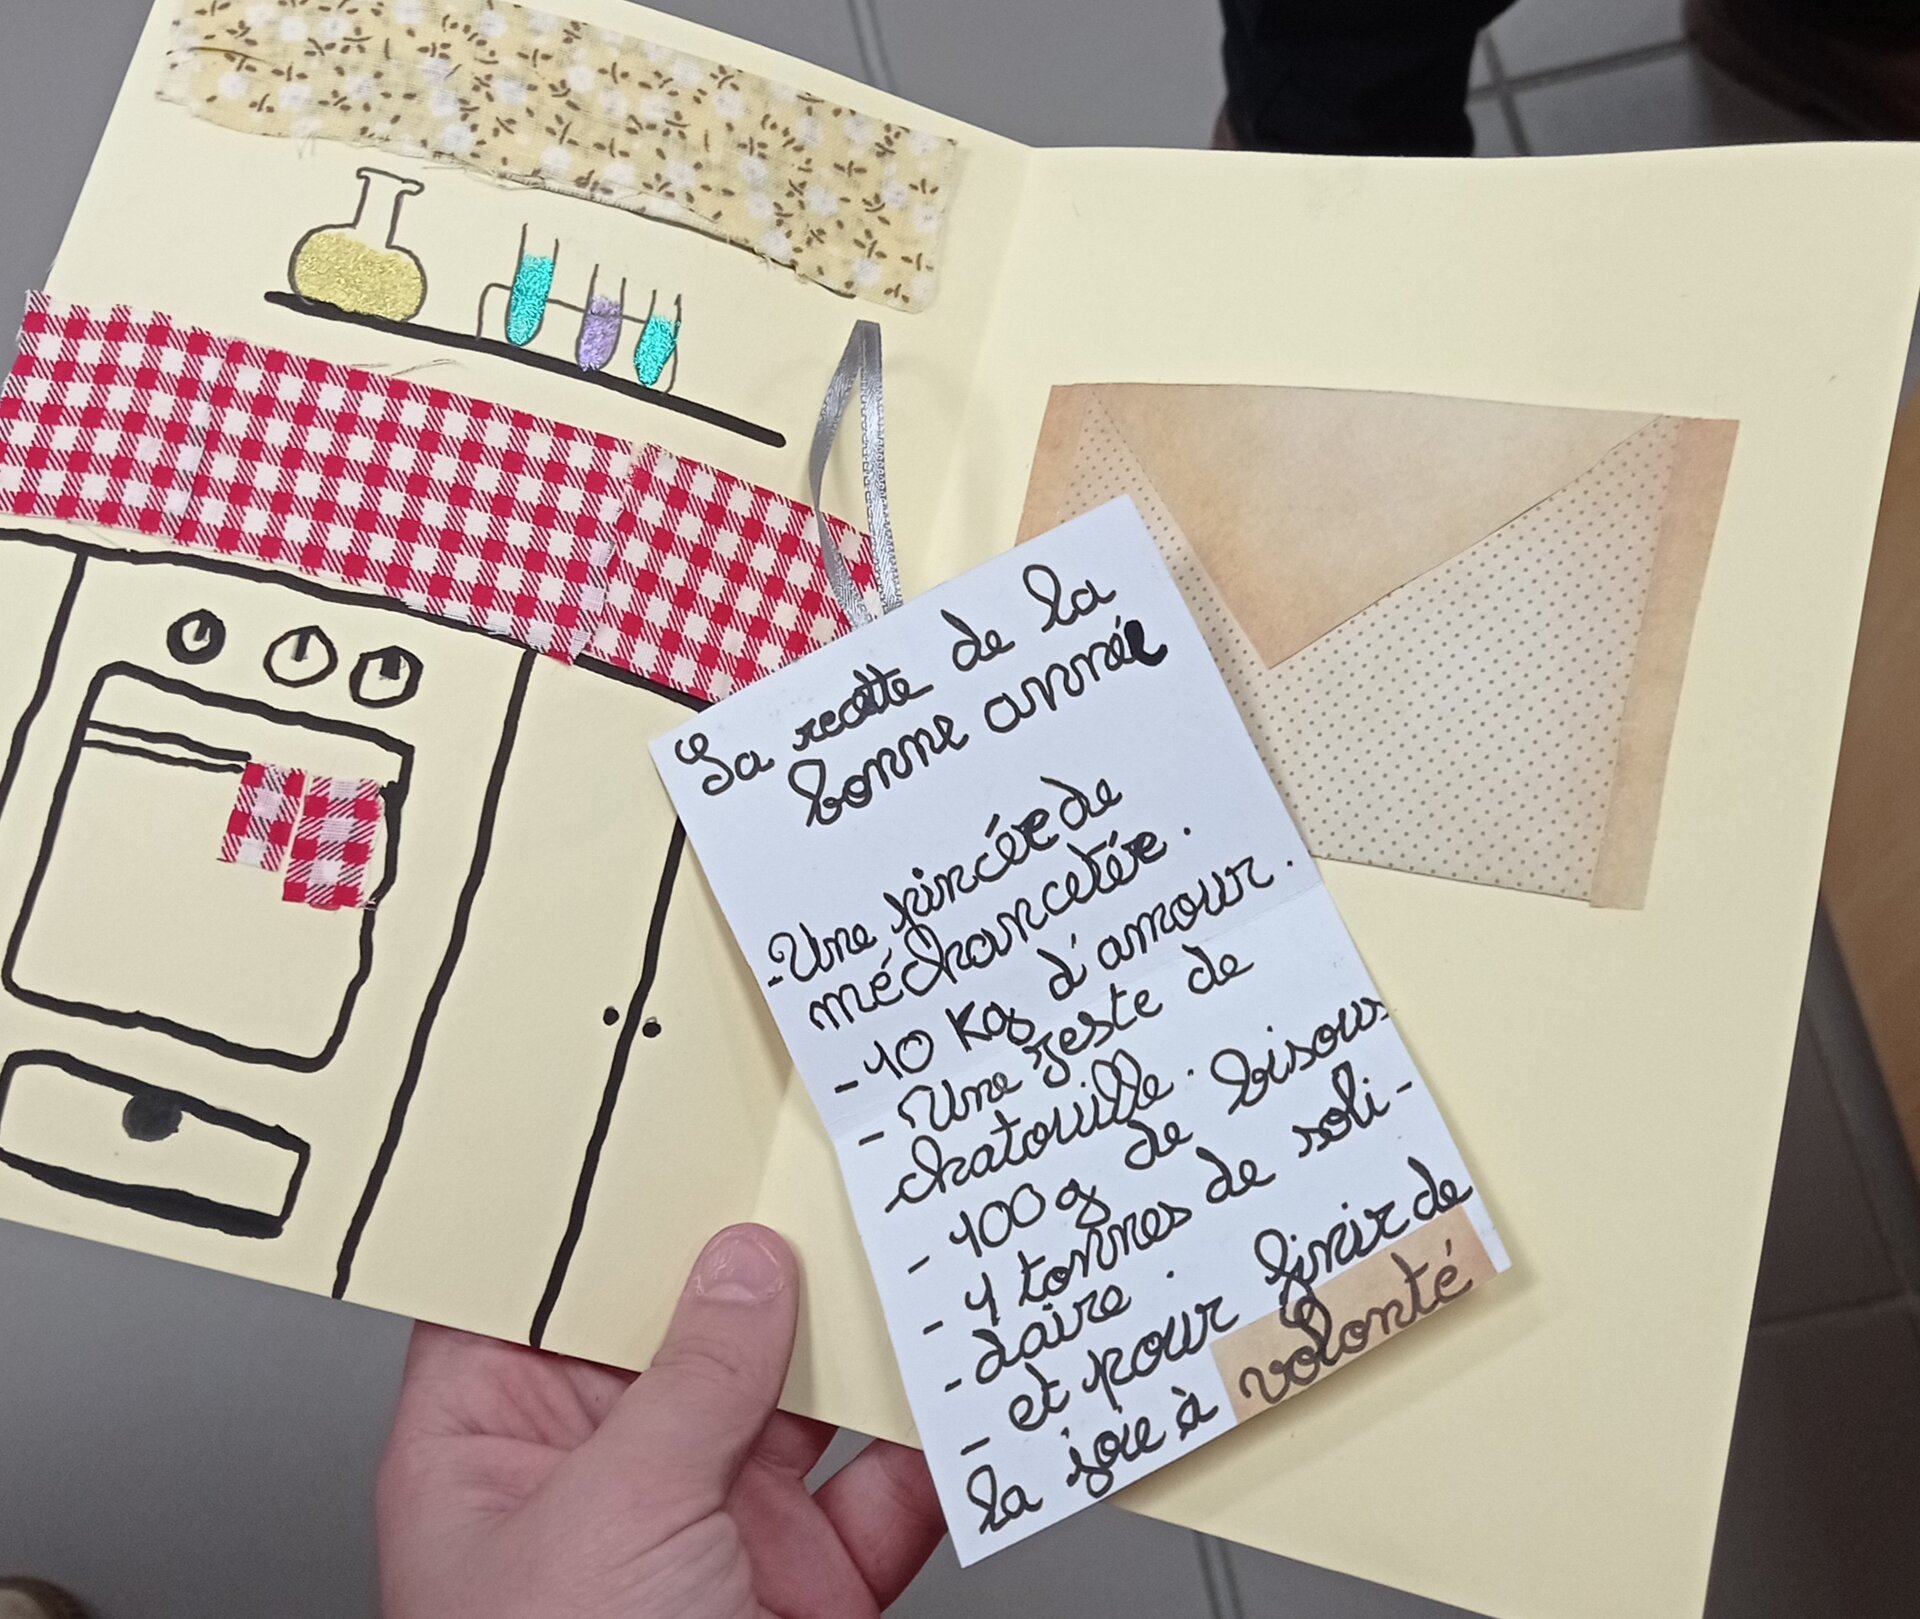 La recette de la
bonne année
- Une pincée de
méchancetée.
- 10 Kg d'amour.
- Une Zeste de
chatouille.
- 100 g de bisous
- 1 tonnes de soli-
- daire.
- et pour finir de
la joie à volonté